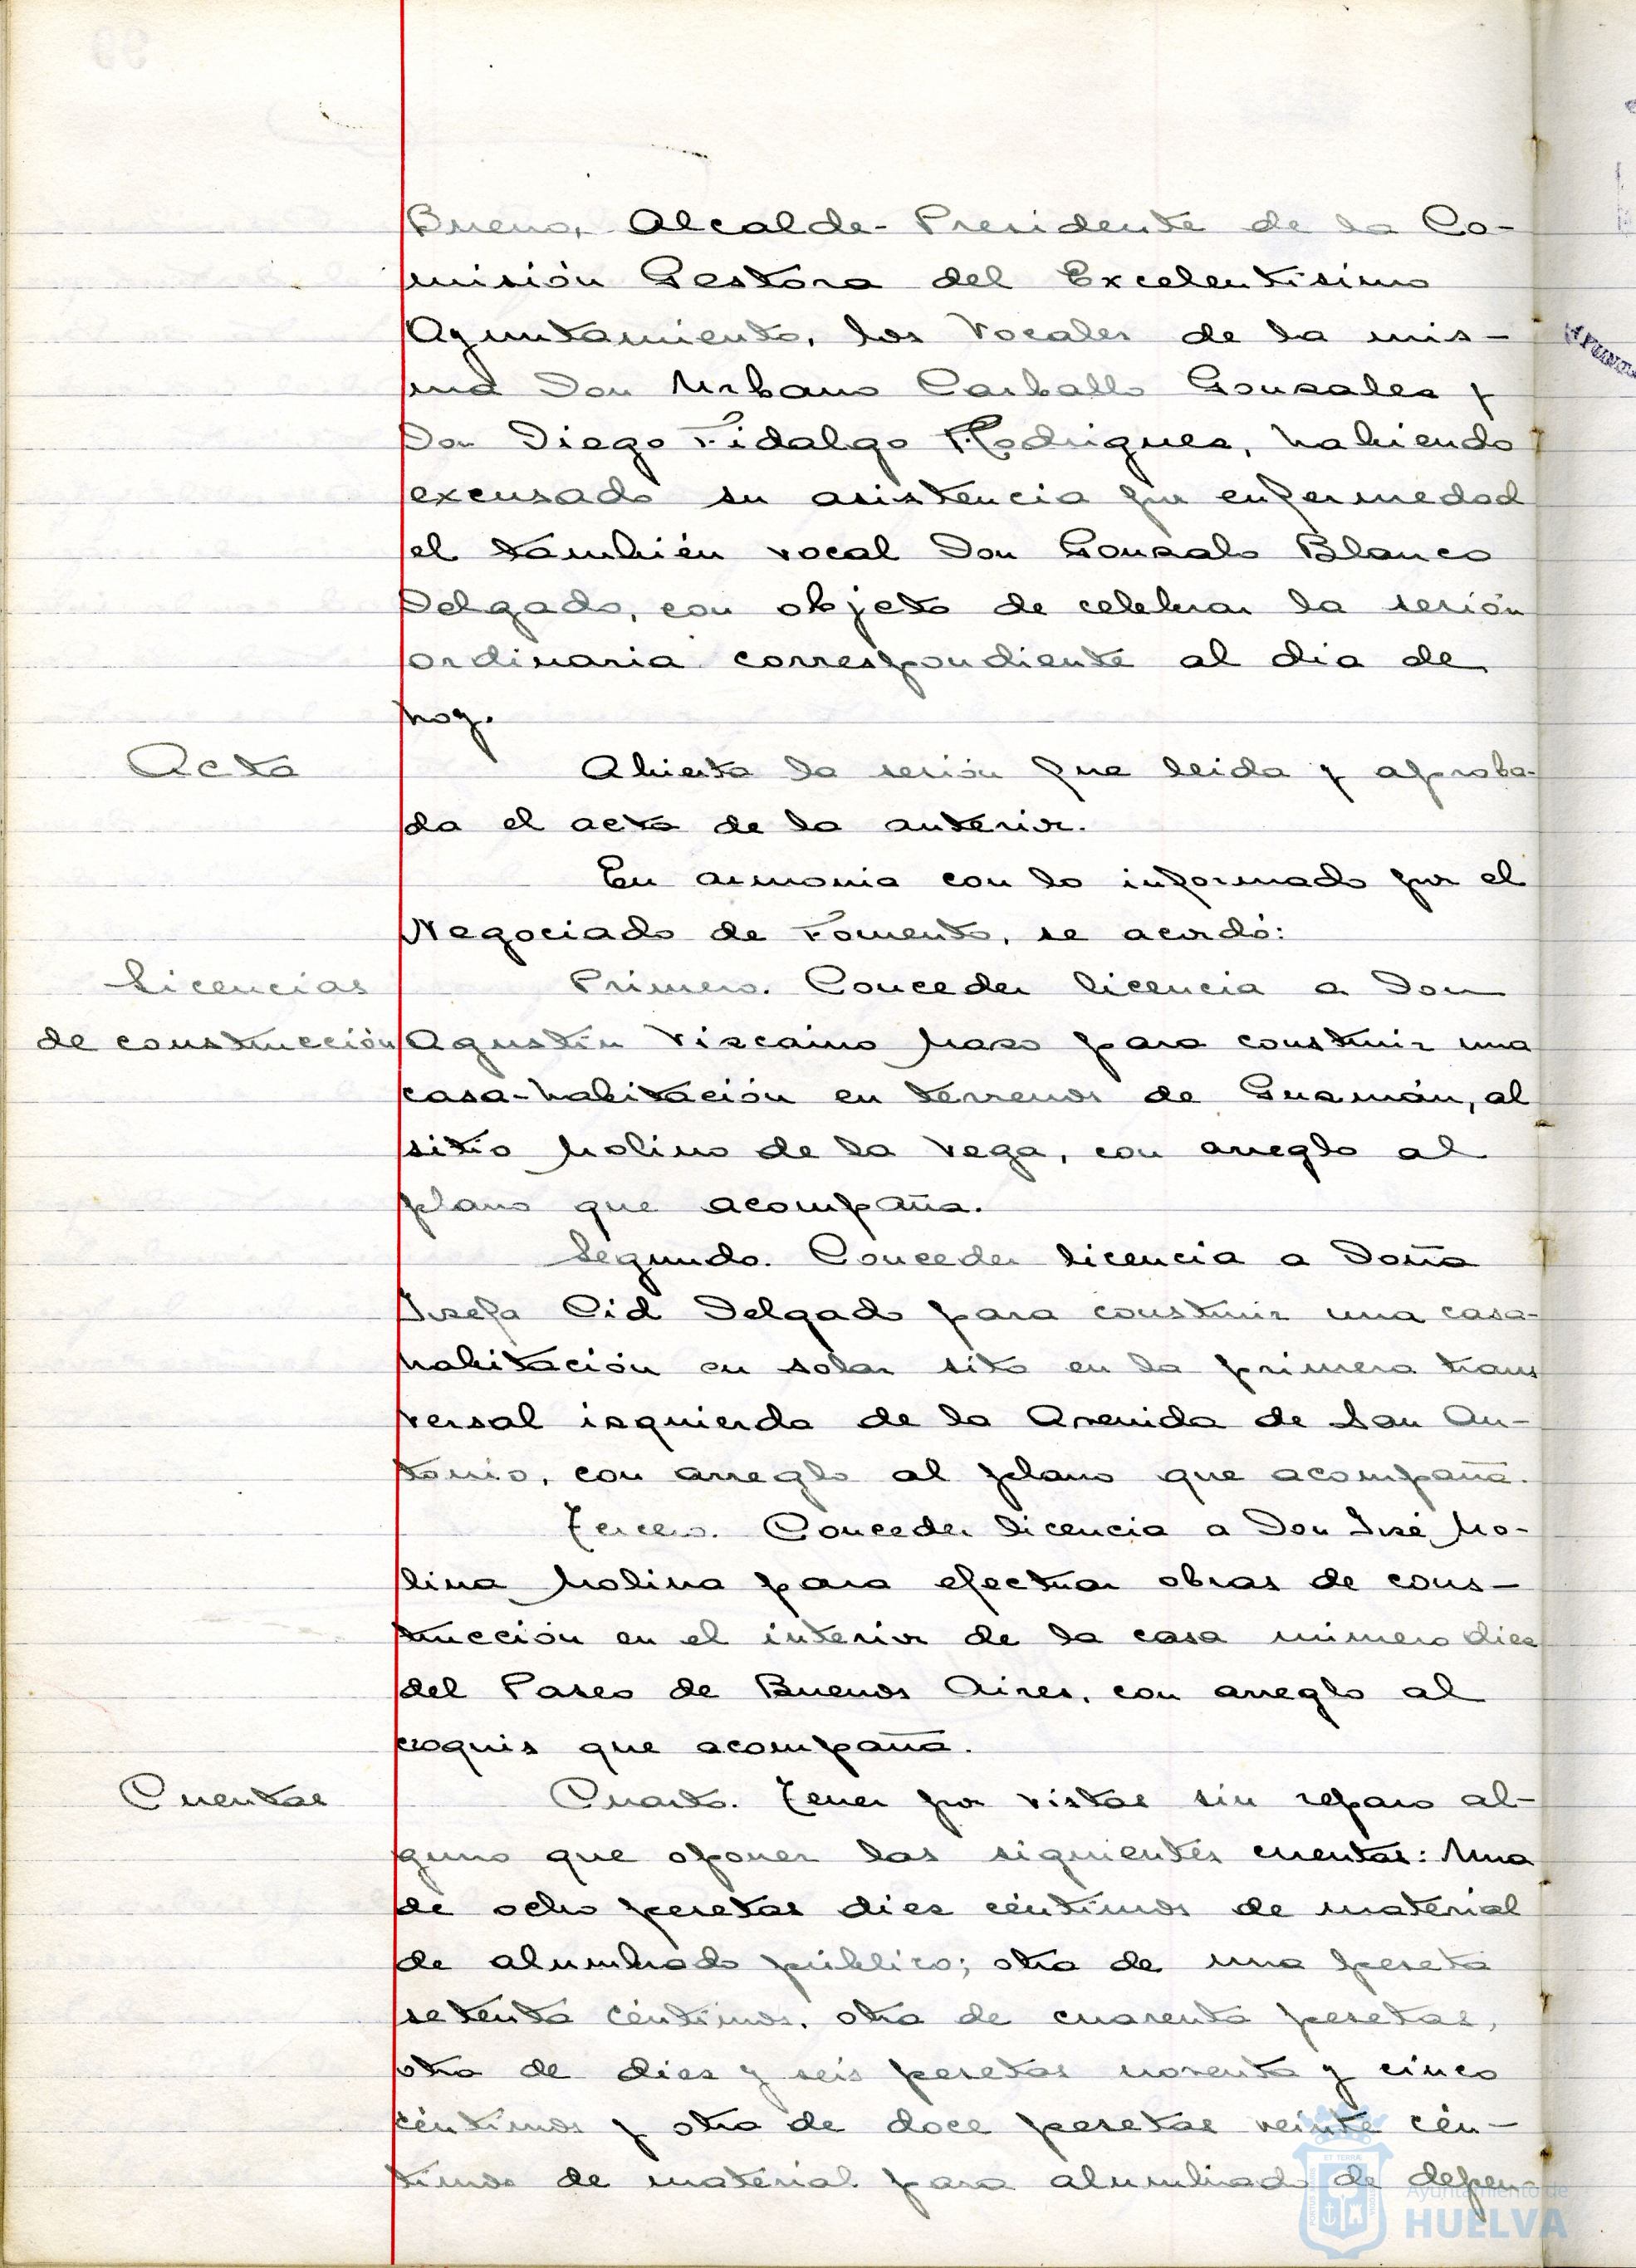 Bueno, Alcalde-Presidente de la Co-
misión Gestora del Excelentísimo
Ayuntamiento, los Vocales de la mis-
ma Don Urbano Carballo Gonzalez y
Don Diego Fidalgo Rodriguez, habiendo
excusado su asistencia por enfermedad
el también vocal Don Gonzalo Blanco
Delgado, con objeto de celebrar la sesión
ordinaria correspondiente al dia de
hoy.
Acta
Abierta la sesión fue leida y aproba-
da el acta de la anterior.
En armonia con lo informado por el
Negociado de Fomento, se acordó:
Licencias
de construcción
Primero. Conceder licencia a Don
Agustín Vizcaino Mazo para construir una
casa-habitación en terrenos de Guzmán, al
sitio Molino de la Vega, con arreglo al
plano que acompaña.
Segundo. Conceder licencia a Doña
Josefa Cid Delgado para construir una casa-
habitación en solar sito en la primera trans
versal izquierda de la Avenida de San An-
tonio, con arreglo al plano que acompaña.
Tercero. Conceder licencia a Don José Mo-
lina Molina para efectuar obras de cons-
trucción en el interior de la casa número diez
del Paseo de Buenos Aires, con arreglo al
croquis que acompaña.
Cuentas
Cuarto. Tener por vistas sin reparo al-
guno que oponer las siguientes cuentas: Una
de ocho pesetas diez céntimos de material
de alumbrado público; otra de una peseta
setenta céntimos, otra de cuarenta pesetas,
otra de diez y seis pesetas noventa y cinco
céntimos y otra de doce pesetas veinte cén-
timos de material para alumbrado de depen
Ayuntamiento de
HUELVA